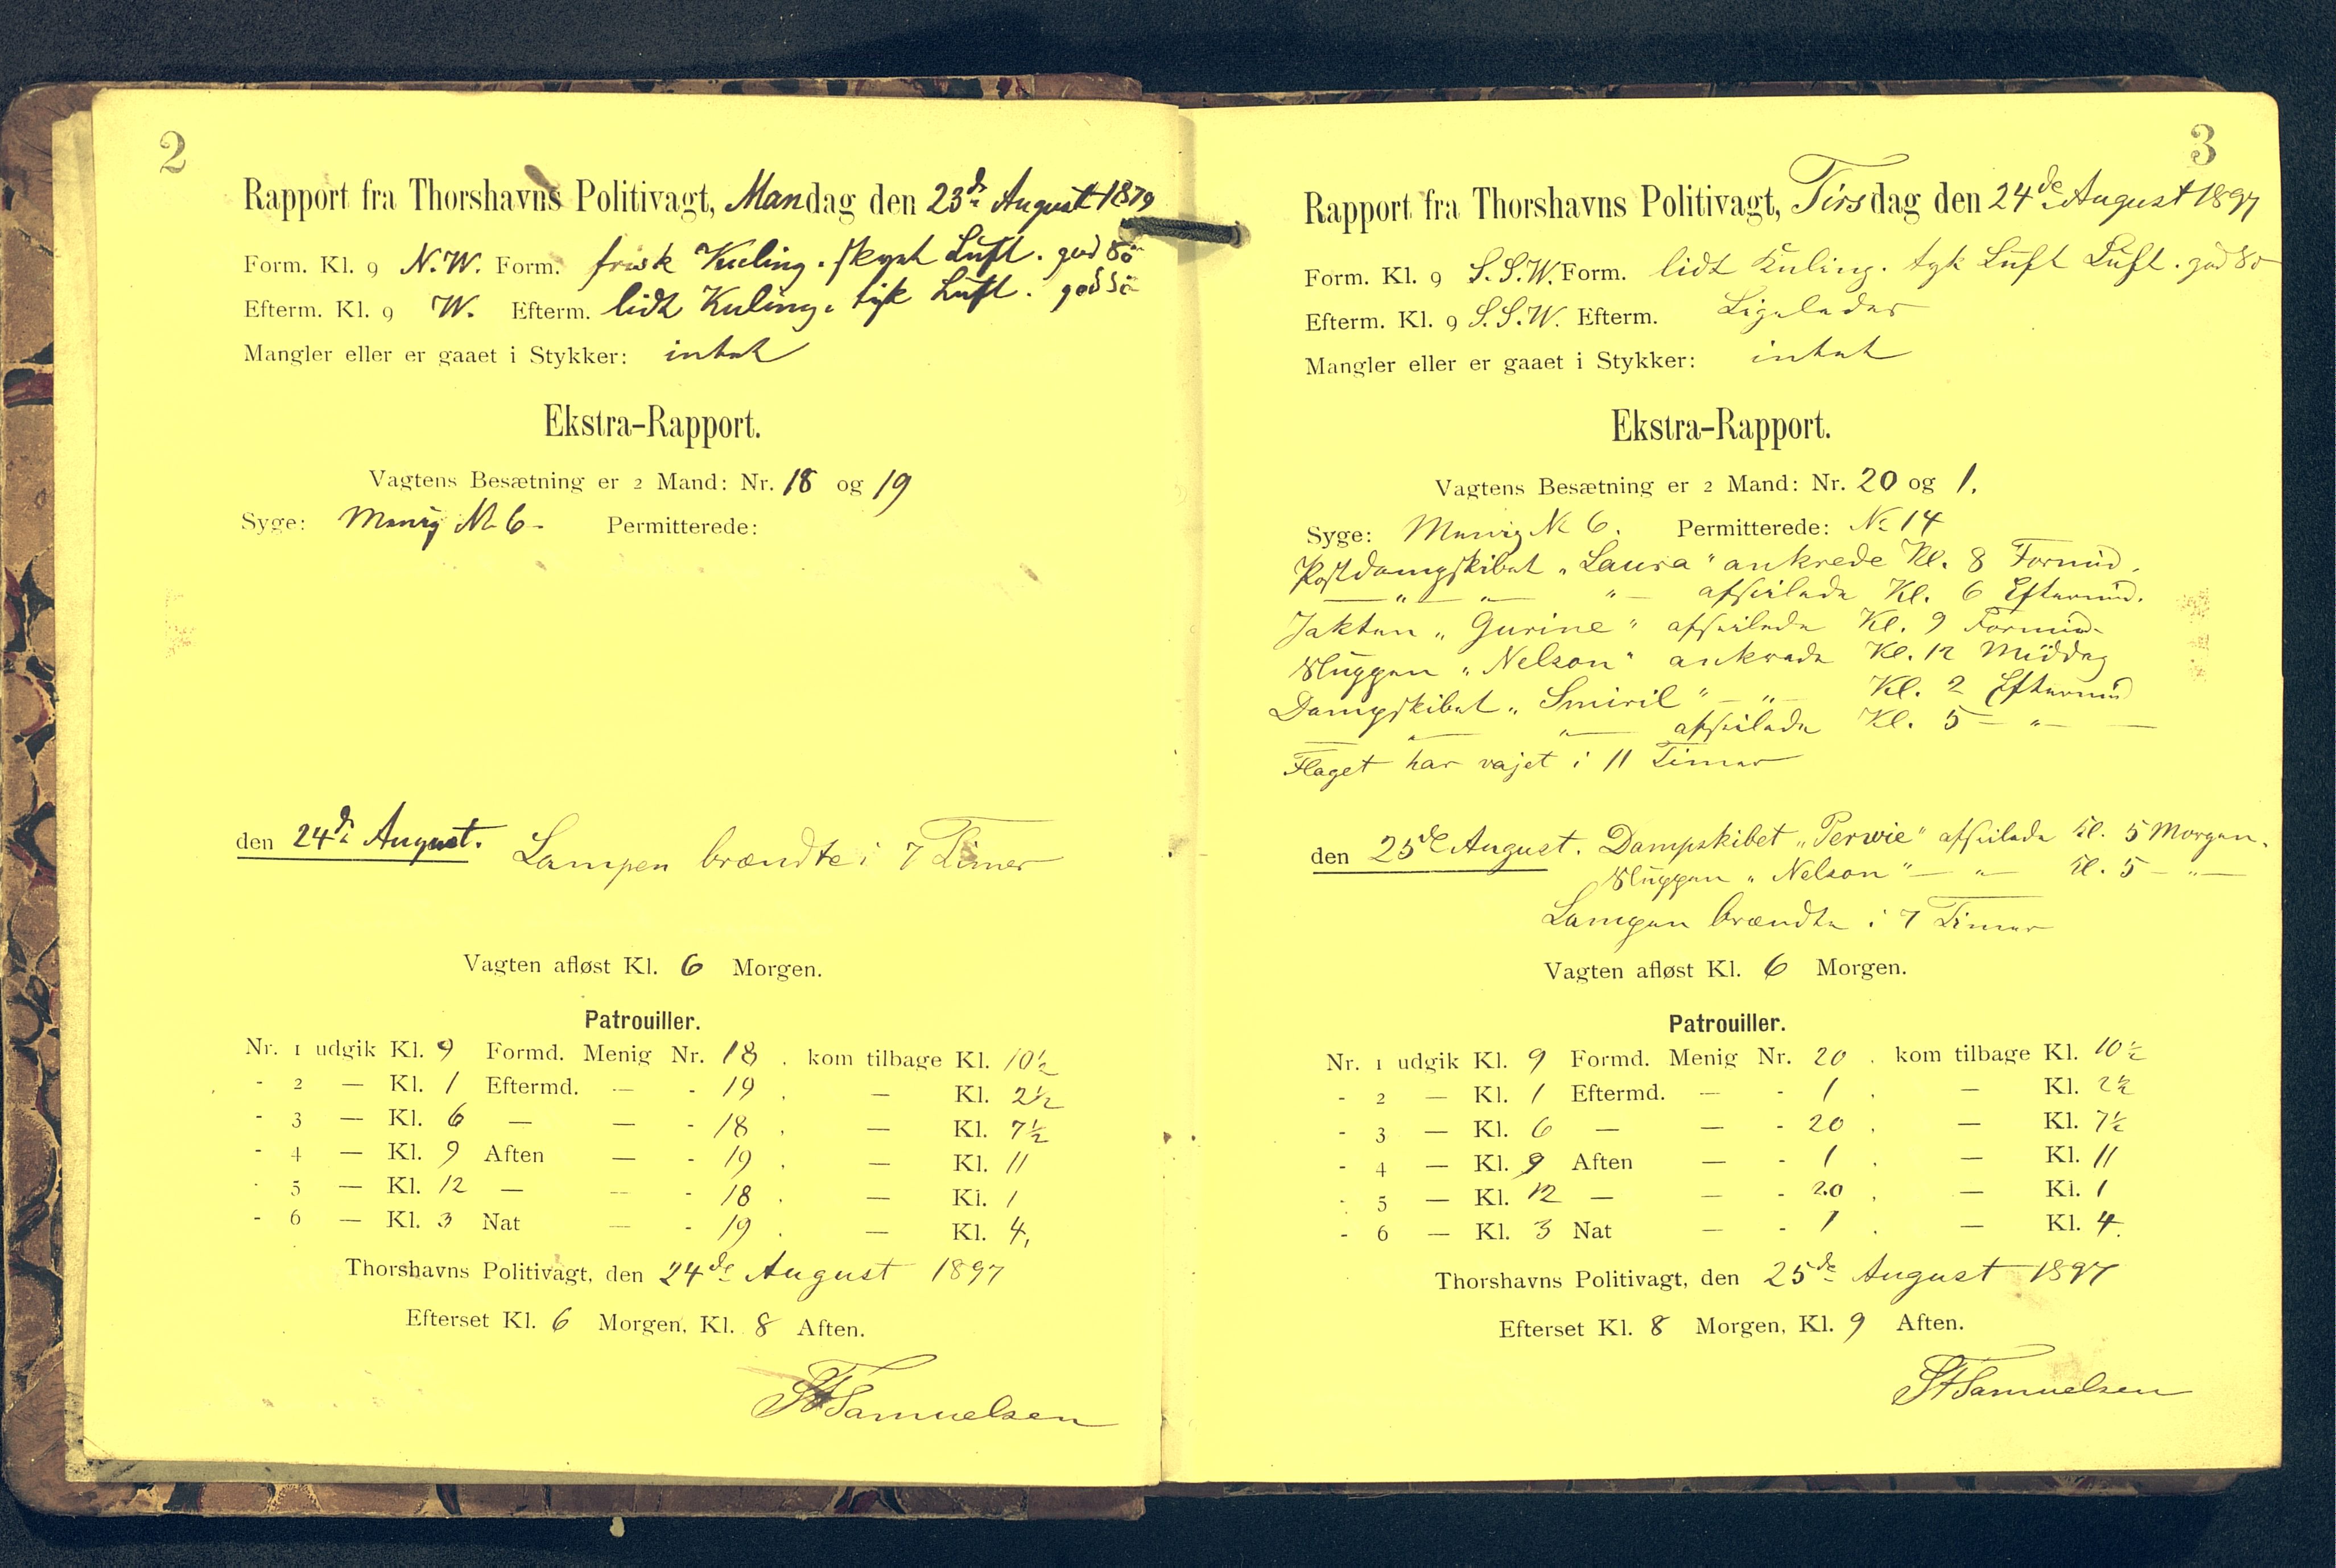 2
Rapport fra Thorshavns Politivagt, Mandag den 23de August 1879
Form. Kl. 9 N.W. Form. frisk Kuling. skyet Luft. god Sö
Efterm. Kl. 9 W. Efterm. lidt Kuling. tyk Luft. god Sö
Mangler eller er gaaet i Stykker: intet
Ekstra-Rapport.
Vagtens Besætning er 2 Mand: Nr. 18 og 19
Syge: Menig No 6. Permitterede:
den 24de August. Lampen brændte i 7 Timer
Vagten afløst Kl. 6 Morgen.
Patrouiller.
Nr. 1 udgik Kl. 9 Formd. Menig Nr. 18. kom tilbage Kl. 10½
- 2 — Kl. 1 Eftermd. — - 19. — Kl. 2½
- 3 — Kl. 6 — — - 18. — Kl. 7½
- 4 — Kl. 9 Aften — - 19. — Kl. 11
- 5 — Kl. 12 — — - 18. — Kl. 1
- 6 — Kl. 3 Nat — - 19. — Kl. 4,
Thorshavns Politivagt, den 24de August 1897
Efterset Kl. 6 Morgen, Kl. 8 Aften.
Samuelsen
3
Rapport fra Thorshavns Politivagt, Tirsdag den 24de August 1897
Form. Kl. 9 S.S.W. Form. lidt Kuling. tyk Luft Luft. god Sö
Efterm. Kl. 9 S.S.W. Efterm. Ligeledes
Mangler eller er gaaet i Stykker: intet
Ekstra-Rapport.
Vagtens Besætning er 2 Mand: Nr. 20 og 1.
Syge: Menig No 6. Permitterede: No 14
Postdampskibet „Laura" ankrede Kl. 8 Formid.
— " — " — " — afseilede Kl. 6 Eftermid.
Jakten „Gurine" afseilede Kl. 9 Formid.
Sluppen „Nelson" ankrede Kl. 12 Middag
Dampskibet „Smiril" — " — Kl. 2 Eftermid
— " — " — afseilede Kl. 5 — " —
Flaget har vajet i 11 Timer
den 25de August. Dampskibet „Perwie" afseilede Kl. 5 Morgen.
Sluppen „Nelson" — " — Kl. 5 — " —
Lampen brændte i 7 Timer
Vagten afløst Kl. 6 Morgen.
Patrouiller.
Nr. 1 udgik Kl. 9 Formd. Menig Nr. 20. kom tilbage Kl. 10½
- 2 — Kl. 1 Eftermd. — - 1. — Kl. 2½
- 3 — Kl. 6 — — - 20. — Kl. 7½
- 4 — Kl. 9 Aften — - 1. — Kl. 11
- 5 — Kl. 12 — — - 20. — Kl. 1
- 6 — Kl. 3 Nat — - 1. — Kl. 4.
Thorshavns Politivagt, den 25de August 1897
Efterset Kl. 8 Morgen, Kl. 9 Aften.
Samuelsen